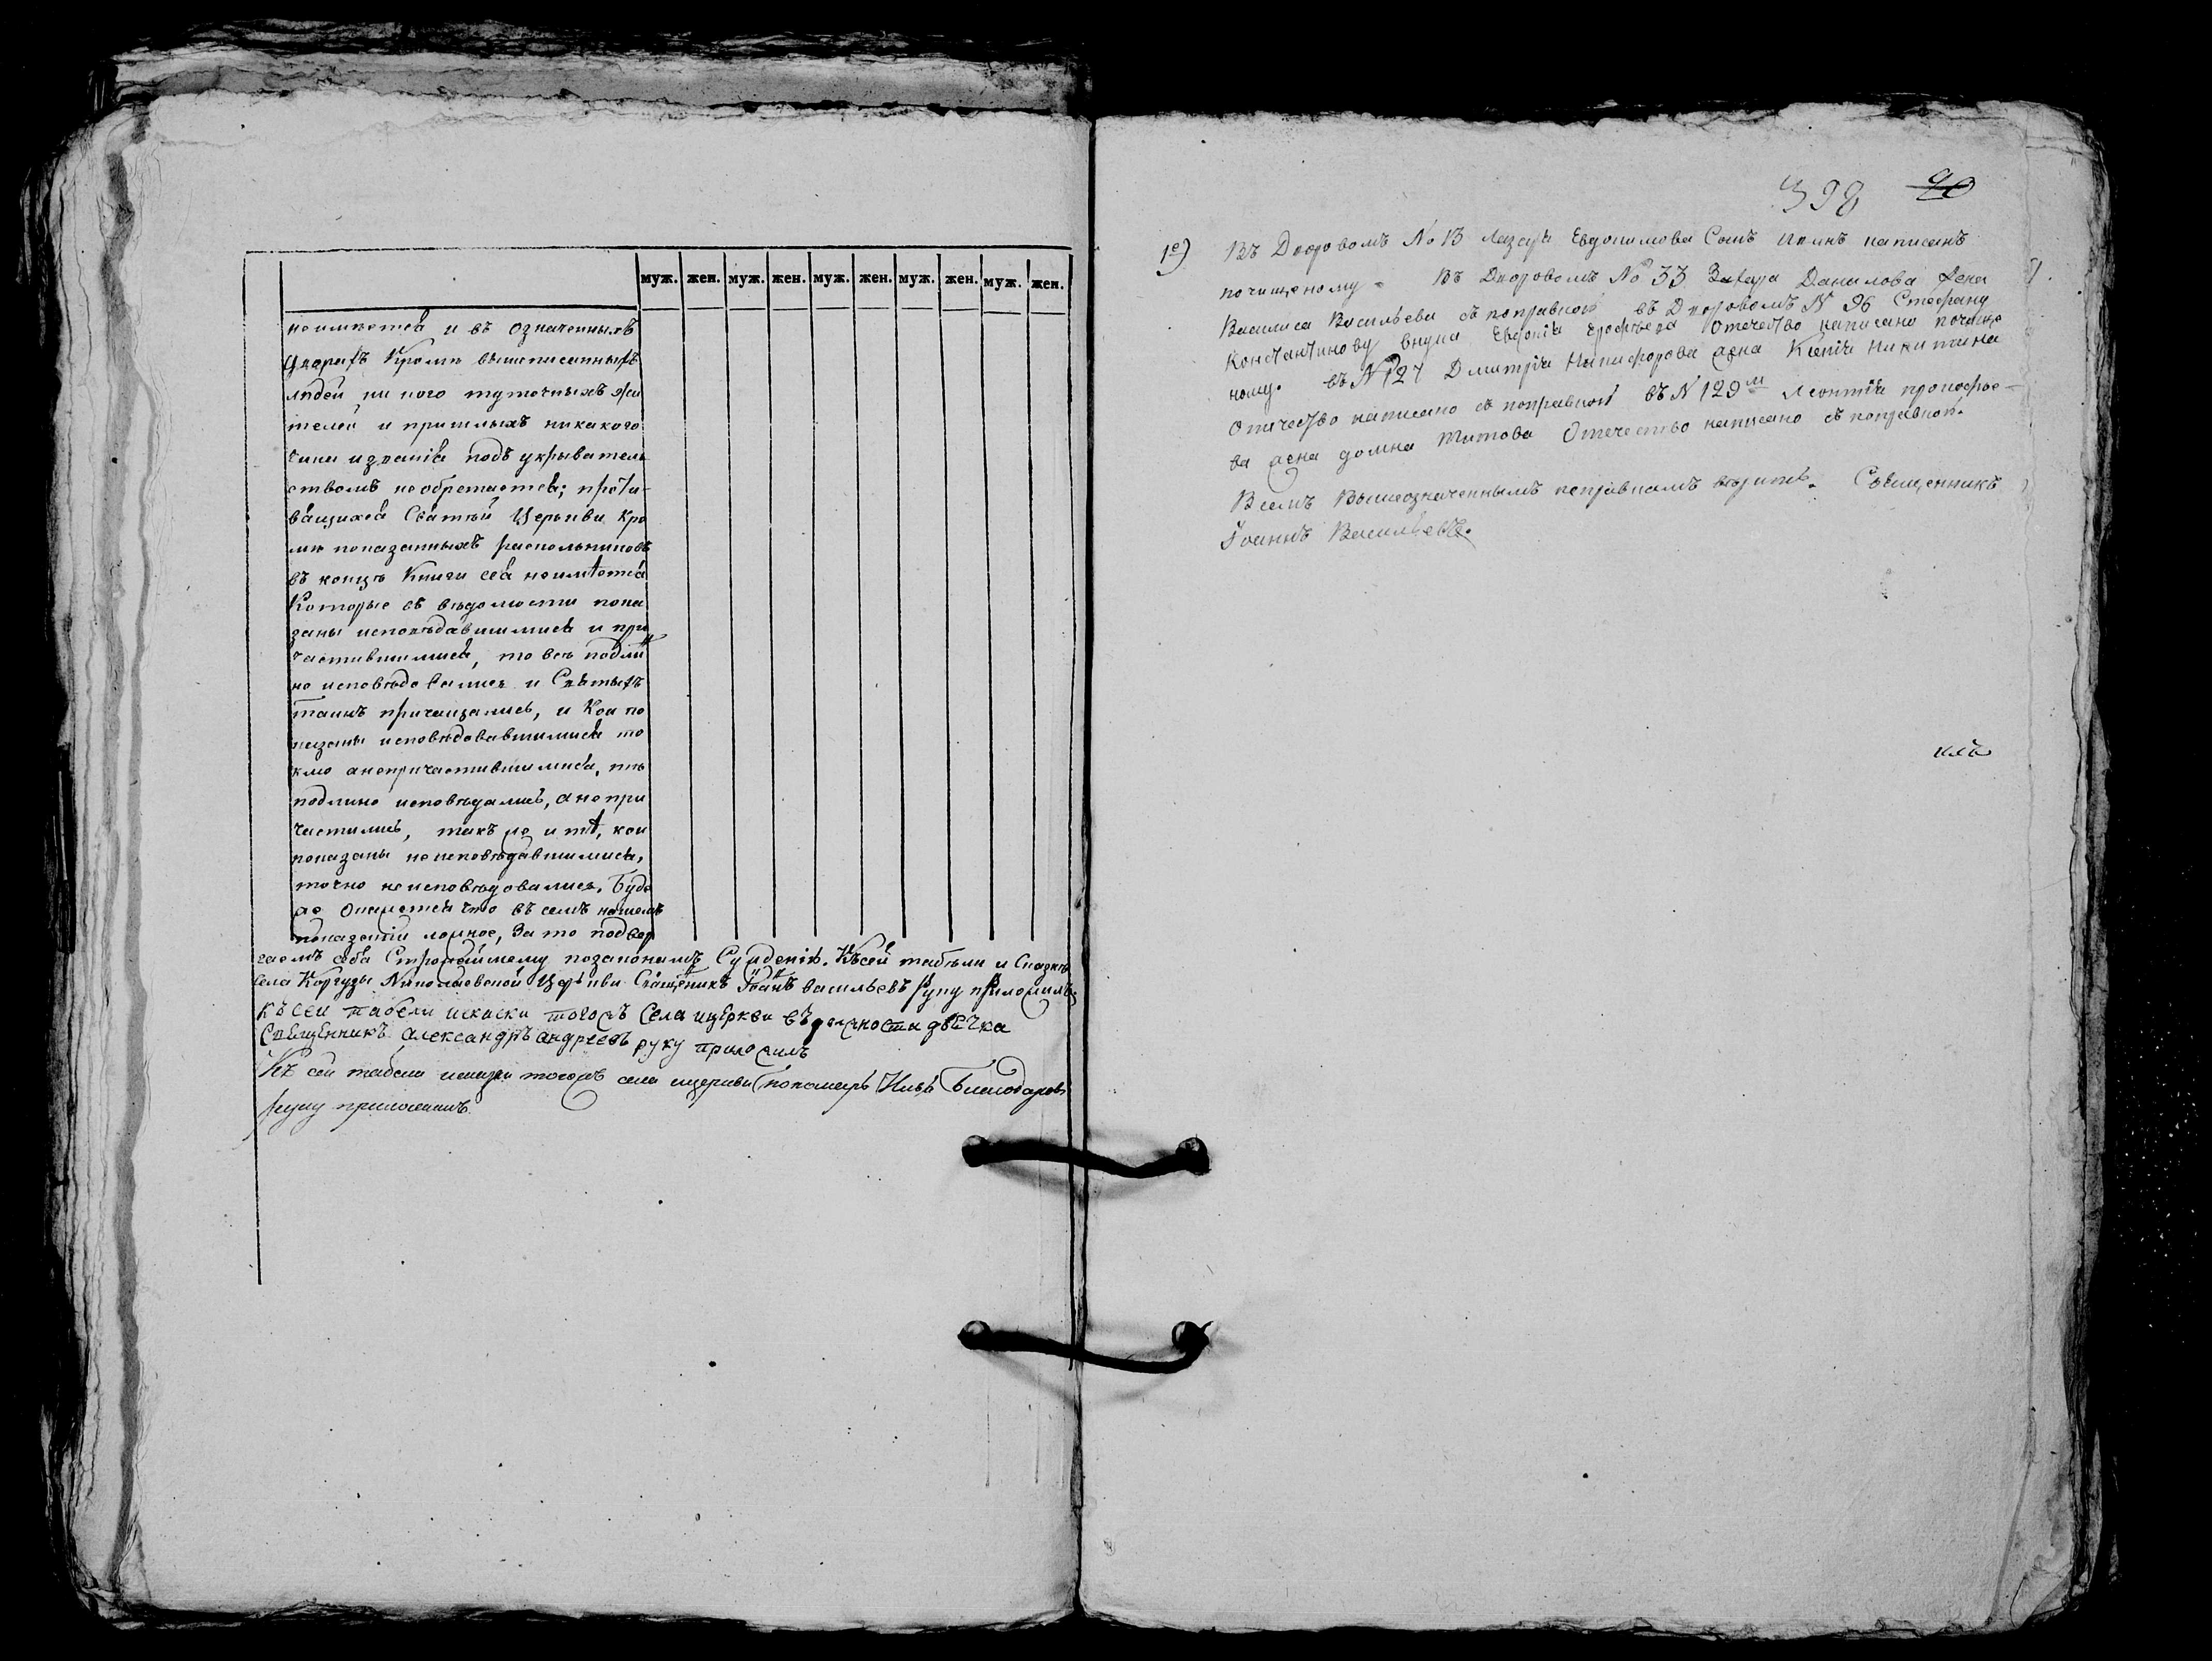 муж. жен. муж. жен. муж. жен. муж. жен. муж. жен.
неимѣется и въ означенныхъ
дворахъ Кромѣ вышеписанныхъ
людей ни кого туточныхъ жи
телей и пришлыхъ никакого
чина и званія подъ укрыватель
ствомъ необретается; проти-
вящихся Святѣй Церькви кро
мѣ показанныхъ раскольниковъ
въ концѣ Книги сея неимѣется
Которые въ вѣдомости пока
заны исповѣдавшимися и при
частившимися, то всѣ подлин
но исповѣдовались и Святыхъ
таинъ причащались, и Кои по
казаны исповѣдовавшимися то
кмо анепричастившимися, тѣ
подлинно исповѣдались, а непри
частились, такъ же и тѣ, кои
показаны неисповѣдавшимися,
точно неисповѣдовались. Буде
же Окажется что въ семъ нашемъ
показаніи ложное, За то подвер
гаемъ себя Строжайшему позаконамъ Сужденію. Къ сей табели и Сказке
села Коргузы Николаевской Церькви Священникъ Іоаннъ васильевъ руку приложилъ.
Къ сеи табели искаски тогожъ Села ицеркви въ должности дьячка
Священникъ александръ андреевъ руку приложилъ
Къ сей табели исказки тогожъ села ицеркви пономарь Илья Благодаровъ
руку приложилъ
398 90
1е) Въ Дворовомъ № 13 Лазаря Евдокимова Сынъ Іоаннъ написанъ
почищеному. Въ Дворовомъ № 33 Захара Данилова жена
Василиса Васильева съ поправкой въ Дворовомъ № 96 Стефану
Константинову внука Евдокія Ерофѣева Отечество написано почище
ному. въ № 127 Дмитрія Никифорова жена Ксенія Никитина
Отечество написано съ поправкой въ № 129м Леонтія прокофье-
ва жена домна Титова Отечество написано съ поправкой.
Всемъ Вышеозначеннымъ поправкамъ верить. Священникъ
Іоаннъ Васильевъ.